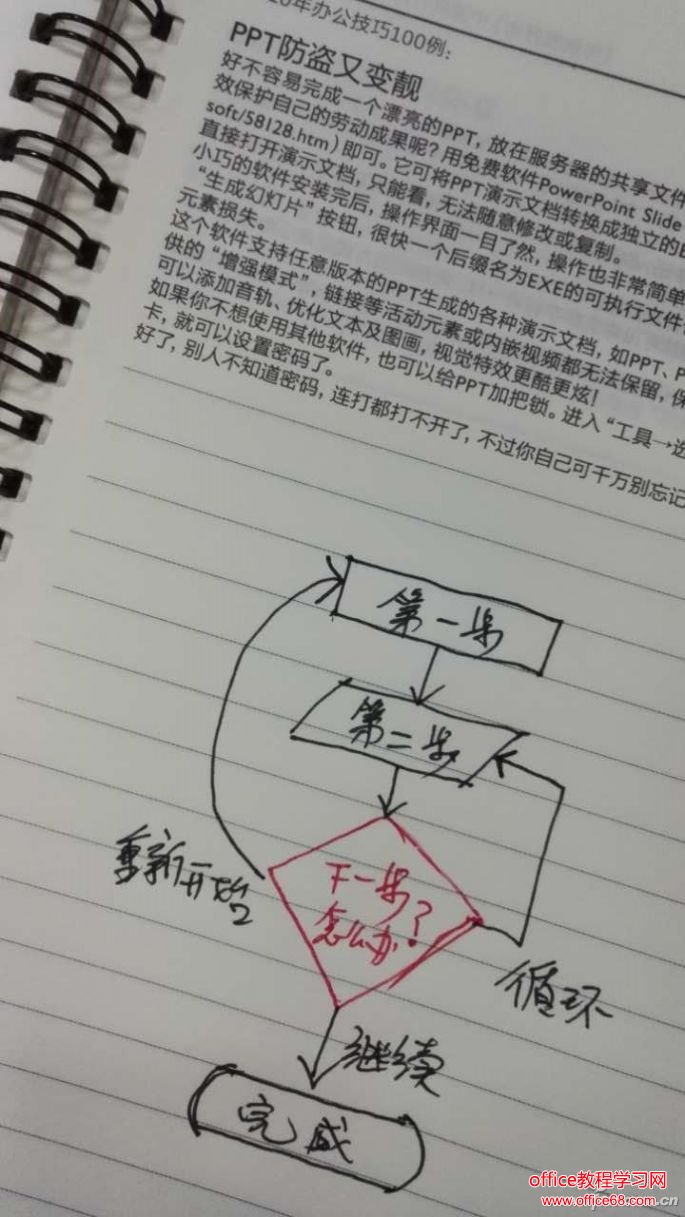 年办公技巧100例：
PPT防盗又变靓
好不容易完成一个漂亮的PPT，放在服务器的共享文件
效保护自己的劳动成果呢？用免费软件PowerPoint Slide
soft/58128.htm）即可。它可将PPT演示文档转换成独立的E
直接打开演示文档，只能看，无法随意修改或复制。
小巧的软件安装完后，操作界面一目了然，操作也非常简单
“生成幻灯片”按钮，很快一个后缀名为EXE的可执行文件
元素损失。
这个软件支持任意版本的PPT生成的各种演示文档，如PPT、P
供的“增强模式”，链接等活动元素或内嵌视频都无法保留，保
可以添加音轨、优化文本及图画，视觉特效更酷更炫！
如果你不想使用其他软件，也可以给PPT加把锁。进入“工具→选
卡，就可以设置密码了。
好了，别人不知道密码，连打都打不开了，不过你自己可千万别忘记
第一步
第二步
下一步
怎么办？
重新开始
循环
继续
完成
office教程学习网
www.office68.com
.cn